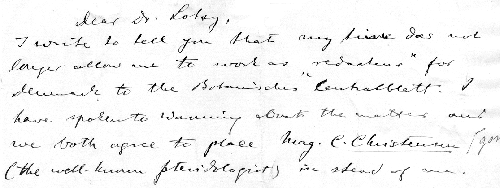 Dear Dr. Lotsy,
I write to tell you that my time does not
longer allow me to work as "redacteur" for
Denmark to the Botanisches "Centralblatt. I
have spoken to Warming about the matter and
we both agree to place Mag. C. Christensen
(the well-known pteridologist) in stead of me.